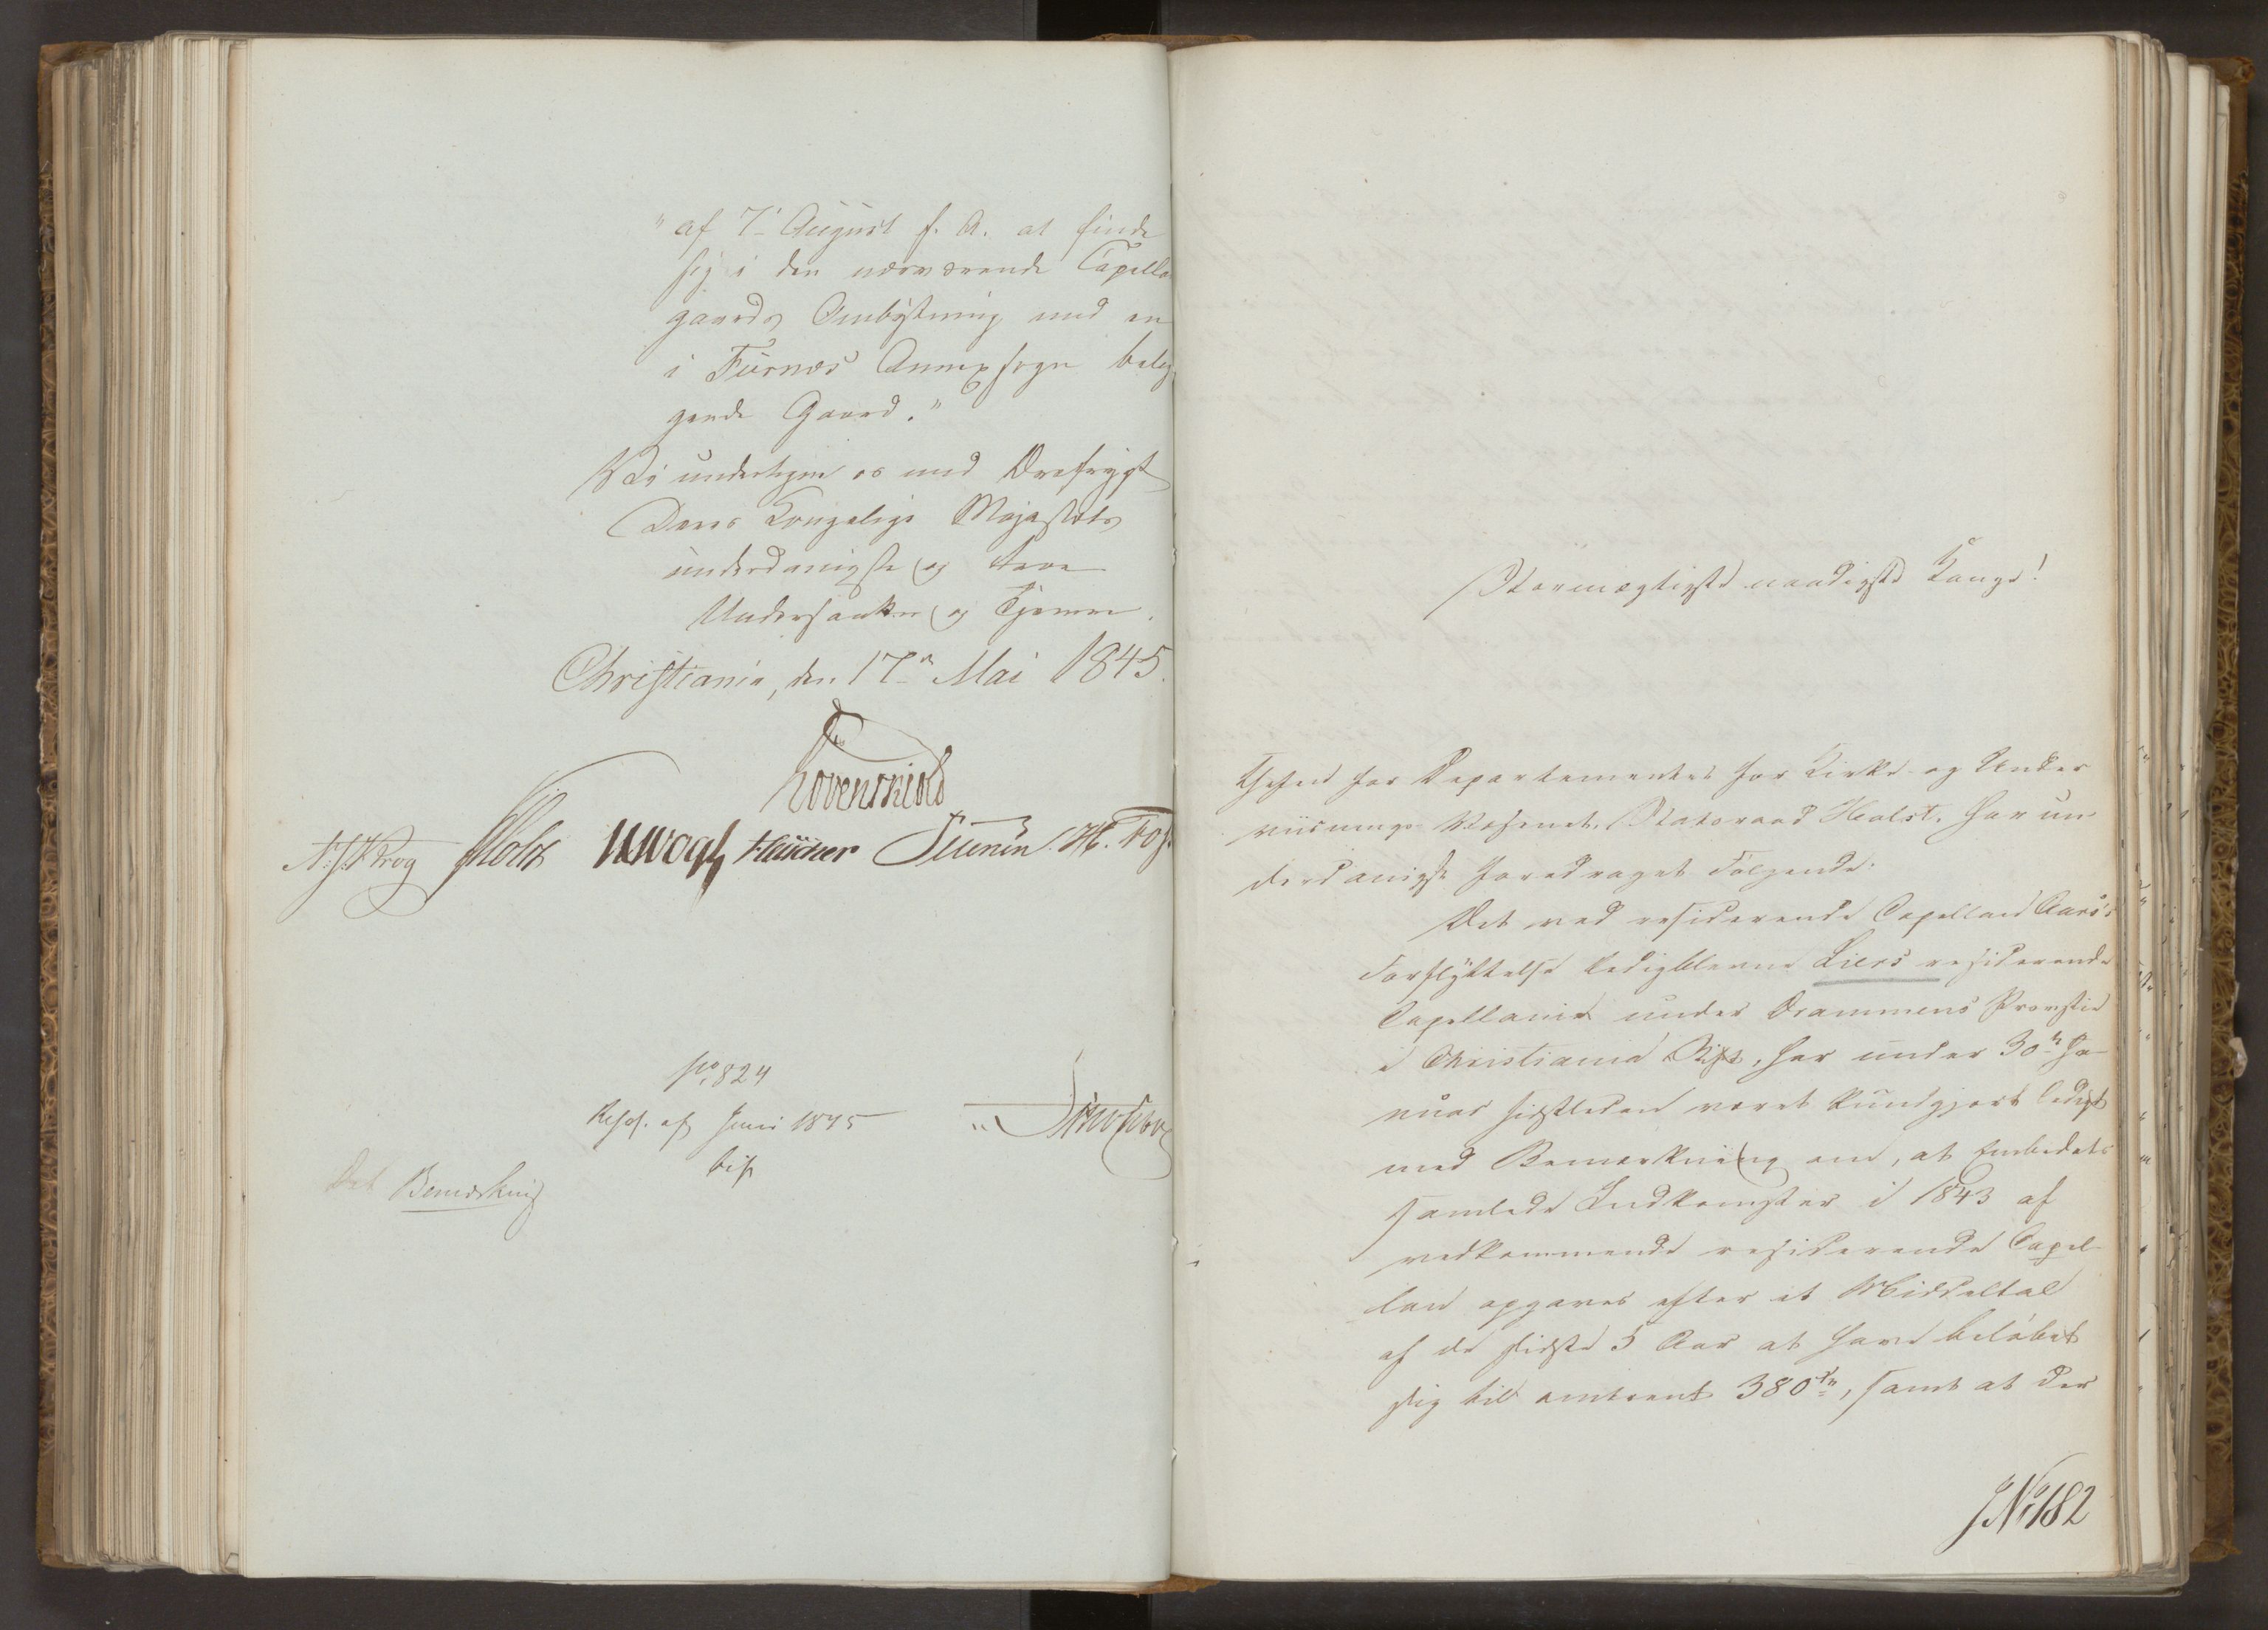 "af 7de August f. A. at finde
sig i den nærværende Capella
gaards Ombytning med en
i Furnæs Annexsogn belig
gende Gaard."
Vi undertegne os med Ærefrygt
Deres Kongelige Majestæts
underdanigste og troe
Undersaatter og Tjenere.
Christiania, den 17de Mai 1845.
Løvenskiold
N. J. Krog Holst Vogt Petersen H. Fos
No. 824
Resol. af Juni 1845
bif
Det Bemærkning
Stormægtigste naadigste Konge!
Chefen for Departementet for Kirke- og Under
viisnings-Væsenet, Statsraad Holst, har un
derdanigst foredraget Følgende:
Det ved residerende Capellan Aars's
Forflyttelse ledigblevne Liers residerende
Capellanie under Drammens Provstie
i Christiania Stift, har under 30te Ja-
nuar sidstleden været kundgjort ledigt
med Bemærkning om, at Embedets
samlede Indkomster i 1843 af
vedkommende residerende Capel-
lan opgaves efter et Middeltal
af de sidste 5 Aar at have beløbet
sig til omtrent 380 Spd, samt at der
J No 182